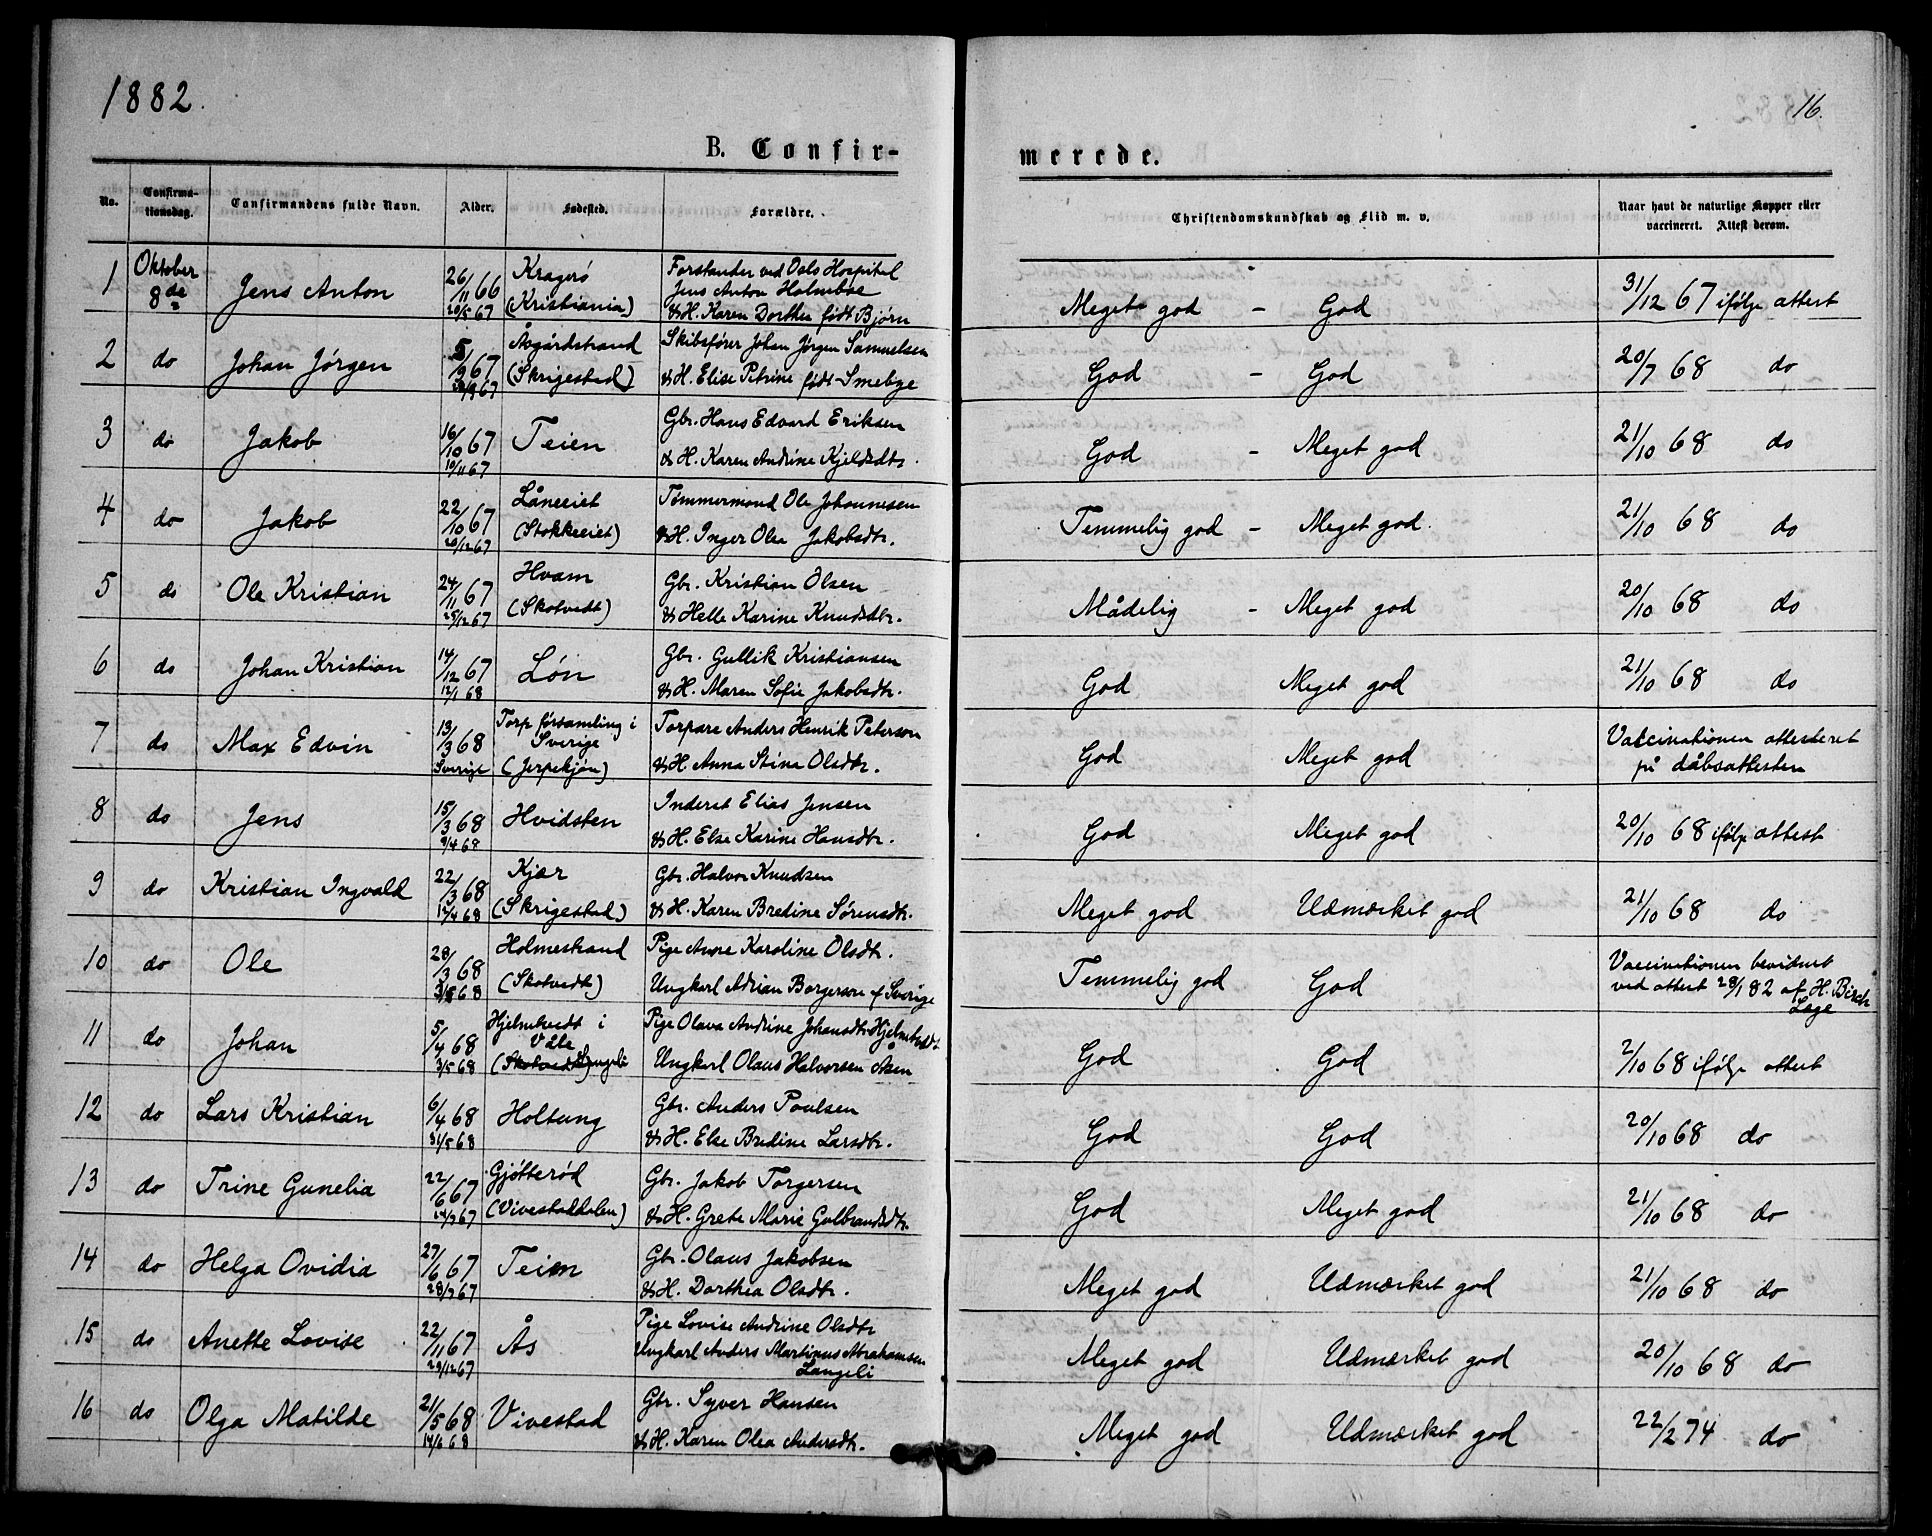 1882.
16.
B. Confir-
merede.
No.
Confirma-
tionsdag.
Confirmandens fulde Navn.
Alder.
Fødested.
Forældre.
Christendomskundskab og Flid m. v.
Naar havt de naturlige Kopper eller
vaccineret. Attest derom.
1 Oktober 8de Jens Anton 26/11 66 20/5 67 Kragerø (Kristiania) Forstander ved Oslo Hospital
Jens Anton Holmboe
& H. Karen Dorthea født Bjørn Meget god - God 31/12 67 ifølge attest
2 do Johan Jørgen 5/9 67 Åsgårdstrand (Skrigestad) Skibsfører Johan Jørgen Samuelsen
& H. Elise Petrine født Smebye God - God 20/7 68 do
3 do Jakob 16/10 67 10/11 67 Teien Gbr. Hans Edvard Eriksen
& H. Karen Andrine Kjeldsdtr. God - Meget god 21/10 68 do
4 do Jakob 22/10 67 26/12 67 Låneeiet (Stokkeeiet) Tømmermand Ole Johannesen
& H. Inger Olea Jakobsdtr. Temmelig god - Meget god. 21/10 68 do
5 do Ole Kristian 24/11 67 25/12 67 Hvam (Skotvedt) Gbr. Kristian Olsen
& Helle Karine Knudsdtr. Mådelig - Meget god 20/10 68 do
6 do Johan Kristian 14/12 67 12/1 68 Løn Gbr. Gullik Kristiansen
& H. Maren Sofie Jakobsdtr. God Meget god 21/10 68 do
7 do Max Edvin 13/3 68 Sverige Torp församling i
Sverige
(Jerpekjøn) Torpare Anders Henrik Peterson
& H. Anna Stina Olsdtr. God Meget god Vaccinationen attesteret
på dåbsattesten
8 do Jens 15/3 68 Hvidsten Inderst Elias Jensen
& H. Else Karine Hansdtr. God Meget god 20/10 68 ifølge attest
9 do Kristian Ingvald 22/3 68 12/4 68 Kjær (Skrigestad) Gbr. Halvor Knudsen
& H. Karen Bredine Sørensdtr. Meget god Udmærket god 21/10 68 do
10 do Ole 28/3 68 Holmestrand (Skotvedt) Pige Anne Karoline Olsdtr.
Ungkarl Adrian Borgerson af Sverige Temmelig god God Vaccinationen bevidnet
ved attest 28/1 82 af H. Birch
Læge
11 do Johan 5/4 68 3/5 68 Hjelmtvedt i
Våle
(Skotvedt) Langeli Pige Olava Andrine Johansdtr Hjelmtvedt
Ungkarl Olaus Halvorsen Åsen God God 2/10 68 ifølge attest
12 do Lars Kristian 6/4 68 31/5 68 Holtung Gbr. Anders Poulsen
& H. Else Bredine Larsdtr. God God 20/10 68 do
13 do Trine Gunelia 22/6 67 Gjøtterød (Vivestaddalen) Gbr. Jakob Torgersen
& H. Grete Marie Gulbrandsdtr. God Meget god 21/10 68 do
14 do Helga Ovidia 27/6 67 28/7 67 Teien Gbr. Olaus Jakobsen
& H. Dorthea Olsdtr. Meget god Udmærket god 21/10 68 do
15 do Anette Lovise 22/11 67 29/12 67 Ås Pige Lovise Andrine Olsdtr
Ungkarl Anders Martinus Abrahamsen
Langeli Meget god Udmærket god 20/10 68 do
16 do Olga Matilde 21/5 68 14/6 68 Vivestad Gbr. Syver Hansen
& H. Karen Olea Andersdtr. Meget god Udmærket god 22/2 74 do